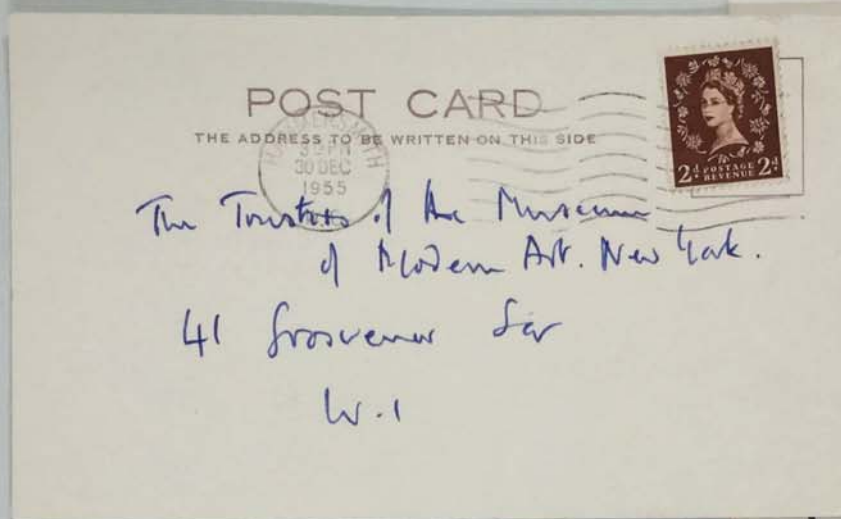 POST CARD
THE ADDRESS TO BE WRITTEN ON THIS SIDE
HAMMERSMITH
30 DEC
1955
2d POSTAGE REVENUE 2d
The Trustees of the Museum
of Modern Art. New York.
41 Grosvenor Sqr
W.1